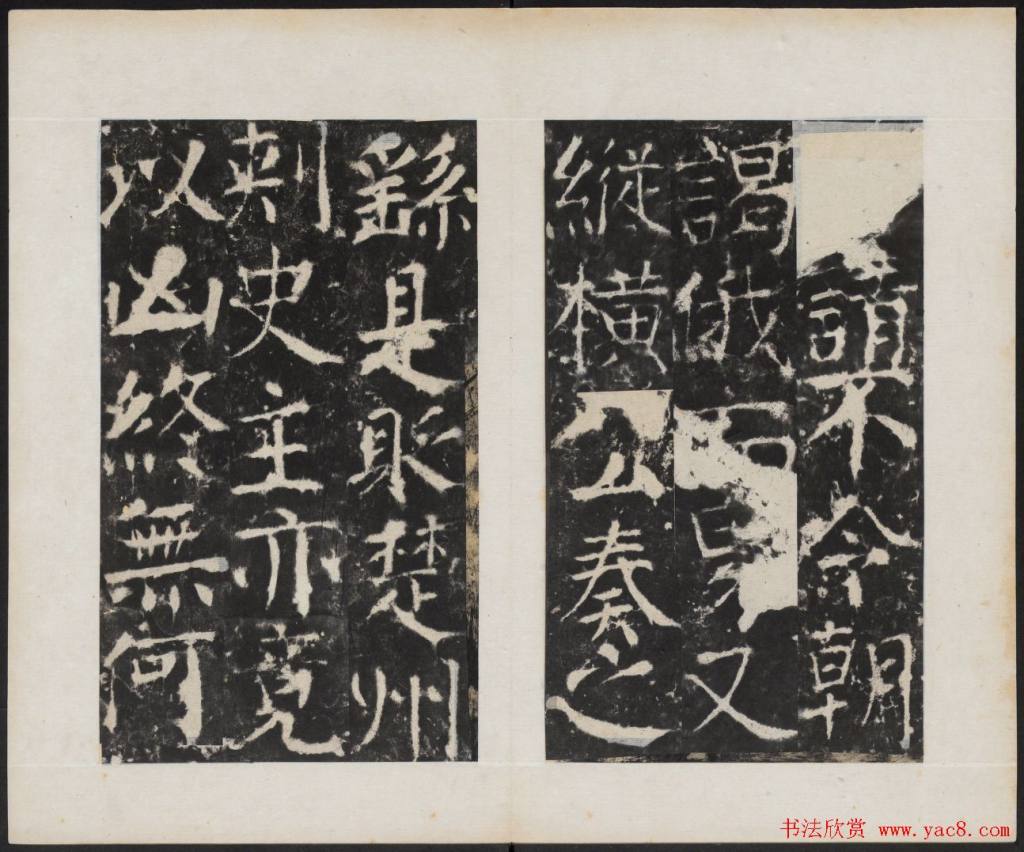 誼不令朝
謁俄又
縱橫公奏之
繇是貶楚州
刾史主亦竟
以凶終無何
书法欣赏 www.yac8.com